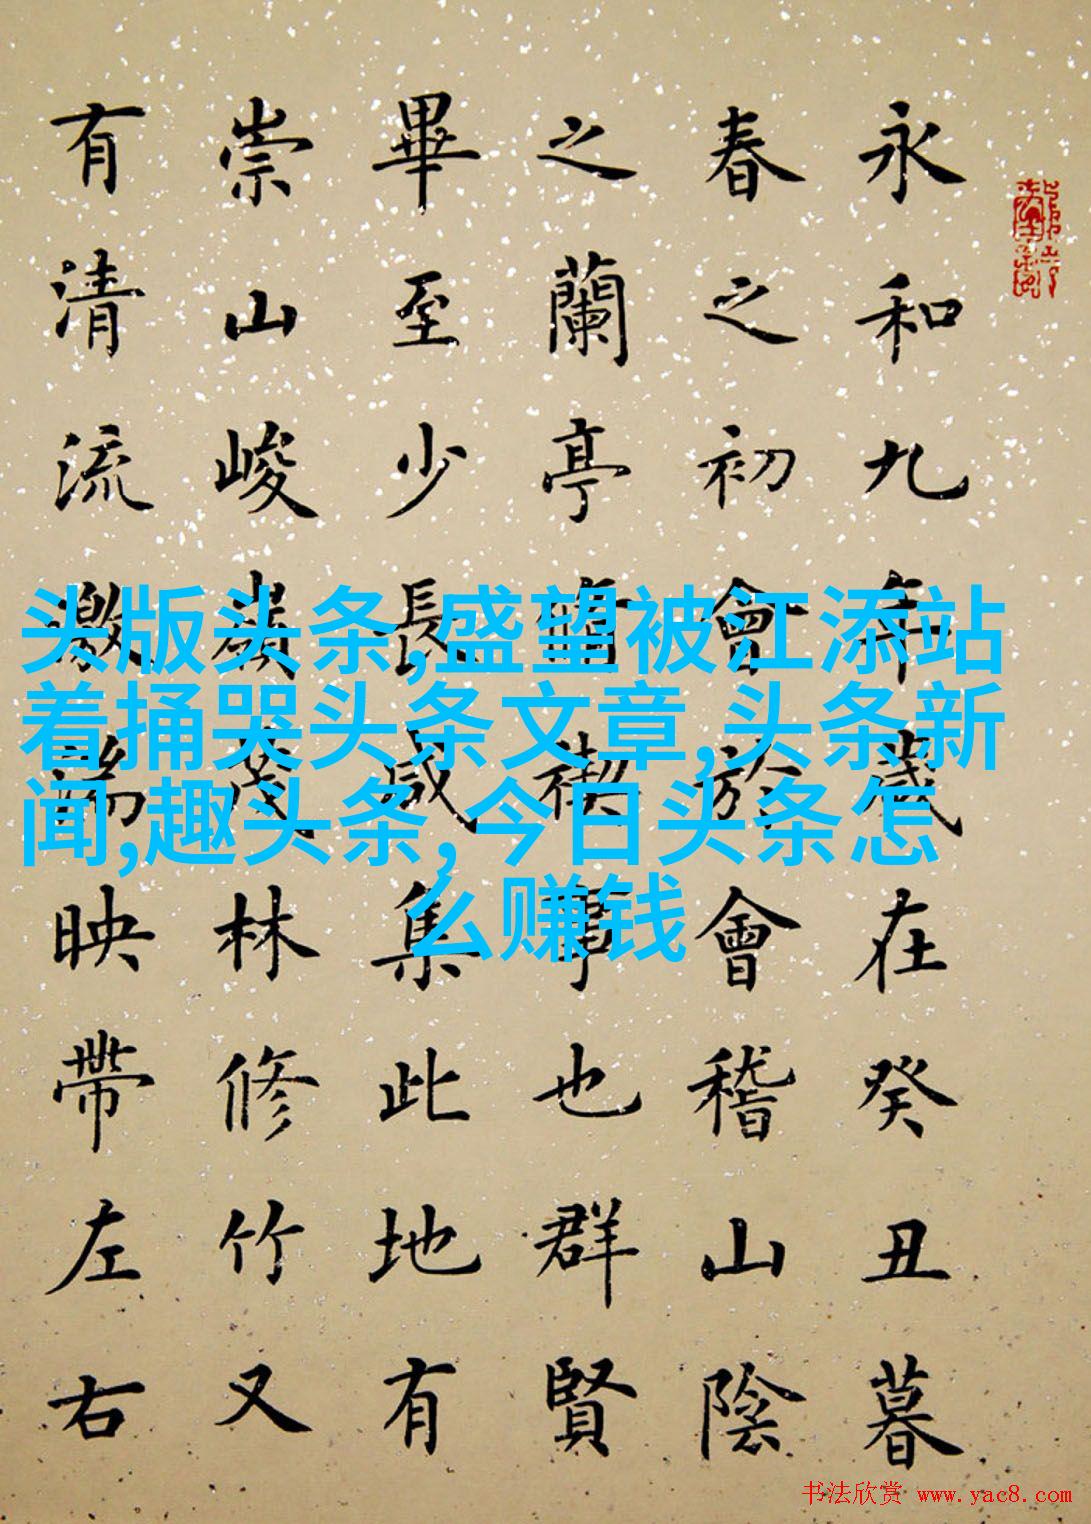 永和九年歲在癸丑暮
春之初會於會稽山陰
之蘭亭脩禊事也群賢
畢至少長咸集此地有
崇山峻嶺茂林修竹又
有清流激湍映帶左右
头版头条,盛望被江添站
着捅哭头条文章,头条新
闻,趣头条, 今日头条怎
么赚钱
书法欣赏 www.yac8.com